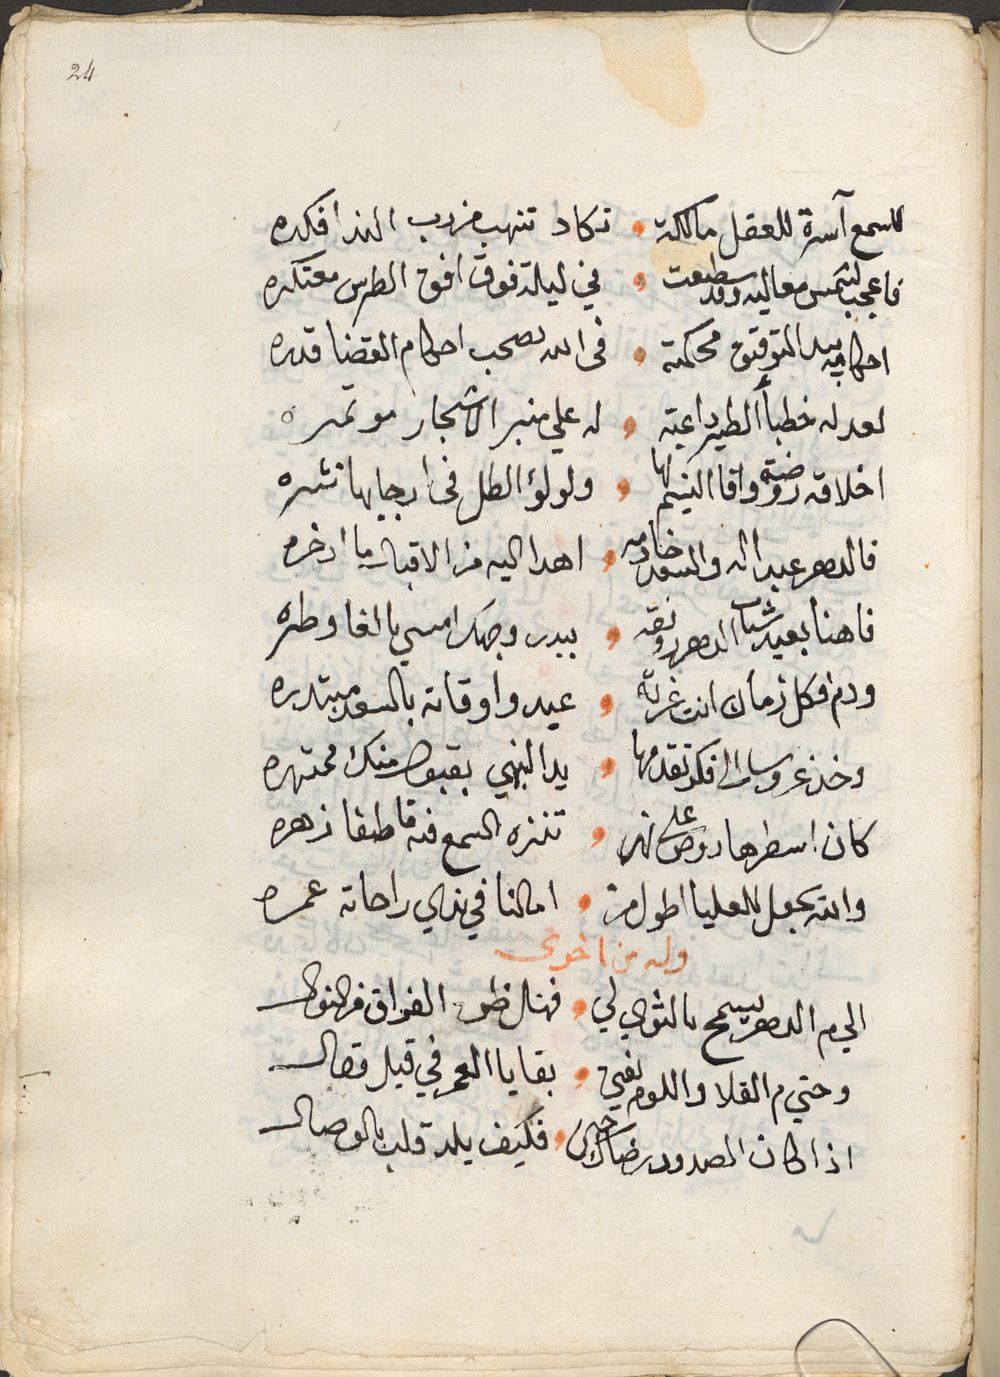 24
للسمع آسرة للعقل مالكة تكاد تنهب من درب الهذا فكره
فاعجب لشمس معاليه وقد سطعت في ليلة فوق افق الطرس معتكره
احكامه بيد التوفيق محكمة في الله تصحب احكام القضا قدره
لعدله خطبأ الطير داعية له علي منبر الاشجار موتمره
اخلاقه روضة وافا النسيم لها ولولؤ الطل في ارجايها نثره
فالدهر عبدا له والسعد خادمه اهدا اليه من الاقبال ما ادخره
فاهنا بعيد شباب الدهر رونقه ببدر وجهك امسي بالغا وطره
ودم فكل زمان انت غرته عيد واوقاته بالسعد مبتدره
وخذ عروسا لها فكر تقدمها يد النهي بقبول منك ممتهره
كان اسطرها روض علي نهر تنزه السمع فيه قاطفا زهره
والله يجعل للعليا اطول من امالنا في ندي راحاته عمره
وله من اخرى
الي م الدهر يسمح بالثوي لي فهنل ظور الفراق من النوال
وحتي م القلا واللوم يفني بقايا العمر في قيل وقال
اذا كان الصدود رضاك حبي فكيف يلد قلب بالوصال